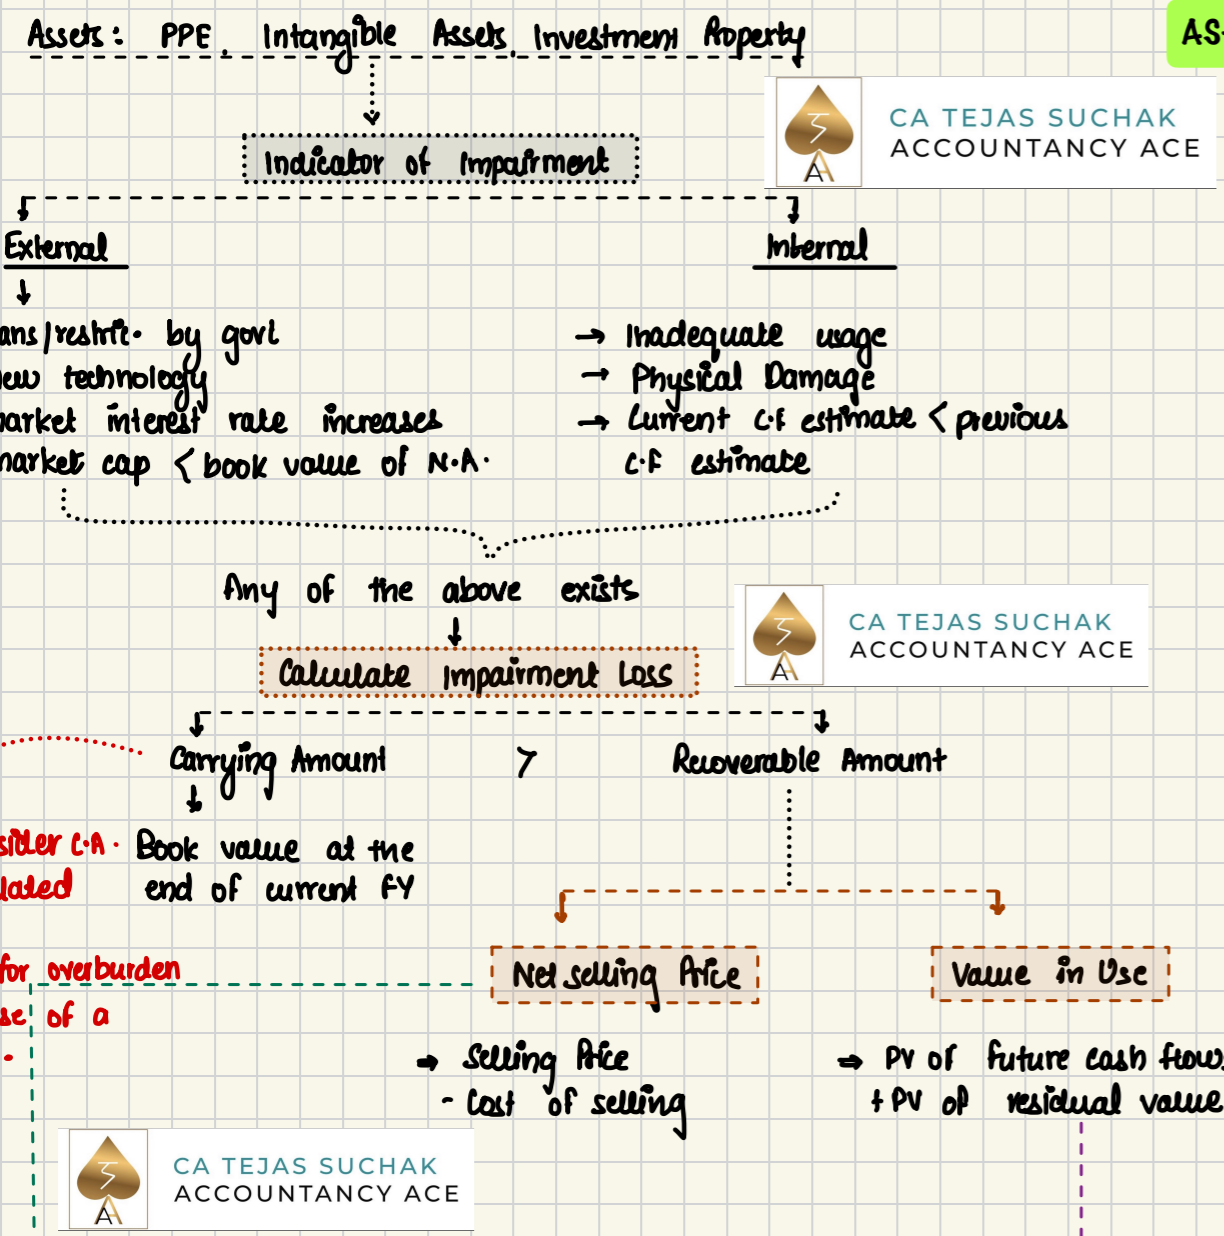 Assets: PPE, Intangible Assets, Investment Property
AS-
CA TEJAS SUCHAK
ACCOUNTANCY ACE
Indicator of Impairment
External
Internal
ans/restric. by govt
ew technology
arket interest rate increases
market cap < book value of N.A.
→ Inadequate usage
→ Physical Damage
→ Current C.F estimate < previous
C.F estimate
Any of the above exists
CA TEJAS SUCHAK
ACCOUNTANCY ACE
Calculate Impairment Loss
Carrying Amount > Recoverable Amount
sider C.A.
lated
Book value at the
end of current FY
for overburden
se of a
Net selling Price
Value in Use
⇒ Selling Price
- Cost of selling
⇒ PV of future cash flows
+ PV of residual value
CA TEJAS SUCHAK
ACCOUNTANCY ACE